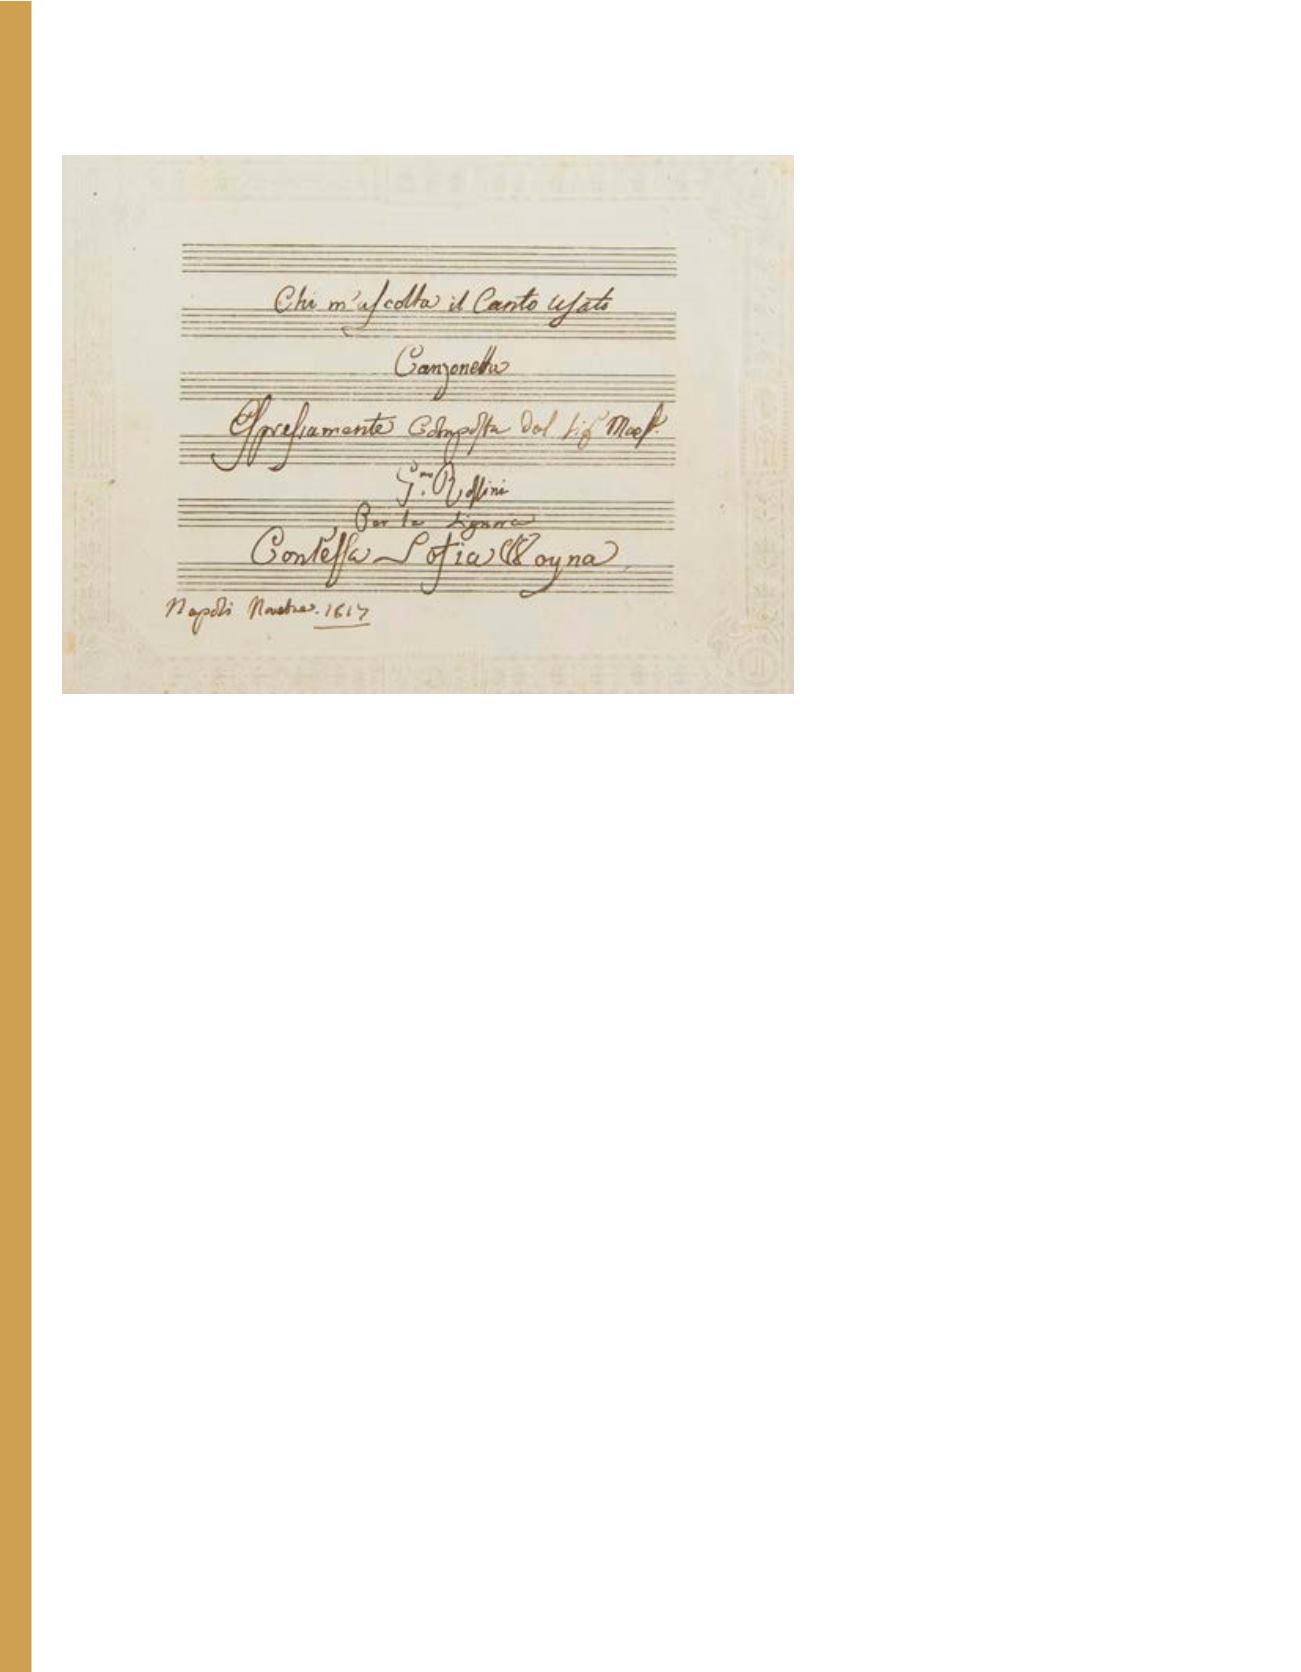 Chi m'ascolta il Canto usato
Canzonetta
Espressamente Composta dal Sig.r Maes.
G.mo Rossini
Per la Signora
Contessa Sofia Woyna
Napoli Novebre. 1817